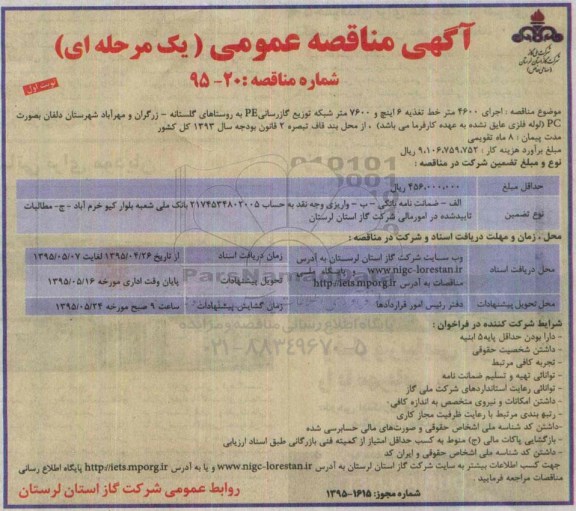 آگهی مناقصه عمومی ( یک مرحله ای)
شماره مناقصه :۲۰- ۹۵
نوبت اول
شرکت ملی گاز
شرکت گاز استان لرستان
(سهامی خاص)
موضوع مناقصه : اجرای ۴۶۰۰ متر خط تغذیه ۶ اینچ و ۷۶۰۰ متر شبکه توزیع گازرسانیPE به روستاهای گلستانه - زرگران و مهرآباد شهرستان دلفان بصورت
PC (لوله فلزی عایق نشده به عهده کارفرما می باشد) ، از محل بند قاف تبصره ۲ قانون بودجه سال ۱۳۹۳ کل کشور
مدت پیمان : ۸ ماه تقویمی
مبلغ برآورد هزینه کار : ۹،۱۰۶،۷۵۹،۷۵۲ ریال
نوع و مبلغ تضمین شرکت در مناقصه :
حداقل مبلغ
۴۵۶،۰۰۰،۰۰۰ ریال
نوع تضمین
الف - ضمانت نامه بانکی - ب - واریزی وجه نقد به حساب ۲۱۷۴۵۳۴۸۰۲۰۰۵ بانک ملی شعبه بلوار کیو خرم آباد - ج- مطالبات
تاییدشده در امورمالی شرکت گاز استان لرستان
محل ، زمان و مهلت دریافت اسناد و شرکت در مناقصه :
محل دریافت اسناد
وب سایت شرکت گاز استان لرستان به آدرس
www.nigc-lorestan.ir و پایگاه ملی
مناقصات به آدرس http://iets.mporg.ir
زمان دریافت اسناد
از تاریخ ۱۳۹۵/۰۴/۲۶ لغایت ۱۳۹۵/۰۵/۰۷
تحویل پیشنهادات
پایان وقت اداری مورخه ۱۳۹۵/۰۵/۱۶
محل تحویل پیشنهادات
دفتر رئیس امور قراردادها
زمان گشایش پیشنهادات
ساعت ۹ صبح مورخه ۱۳۹۵/۰۵/۲۴
شرایط شرکت کننده در فراخوان :
- دارا بودن حداقل پایه۵ ابنیه
- داشتن شخصیت حقوقی
- تجربه کافی مرتبط
- توانائی تهیه و تسلیم ضمانت نامه
- توانائی رعایت استانداردهای شرکت ملی گاز
-داشتن امکانات و نیروی متخصص به اندازه کافی
- رتبه بندی مرتبط با رعایت ظرفیت مجاز کاری
-داشتن کد شناسه ملی اشخاص حقوقی و صورت‌های مالی حسابرسی شده
- بازگشایی پاکات مالی (ج) منوط به کسب حداقل امتیاز از کمیته فنی بازرگانی طبق اسناد ارزیابی
- داشتن کد شناسه ملی اشخاص حقوقی و ایران کد
جهت کسب اطلاعات بیشتر به سایت شرکت گاز استان لرستان به آدرس www.nigc-lorestan.ir و یا به آدرس http://iets.mporg.ir پایگاه اطلاع رسانی
مناقصات مراجعه فرمایید .
شماره مجوز: ۱۶۱۵-۱۳۹۵
روابط عمومی شرکت گاز استان لرستان